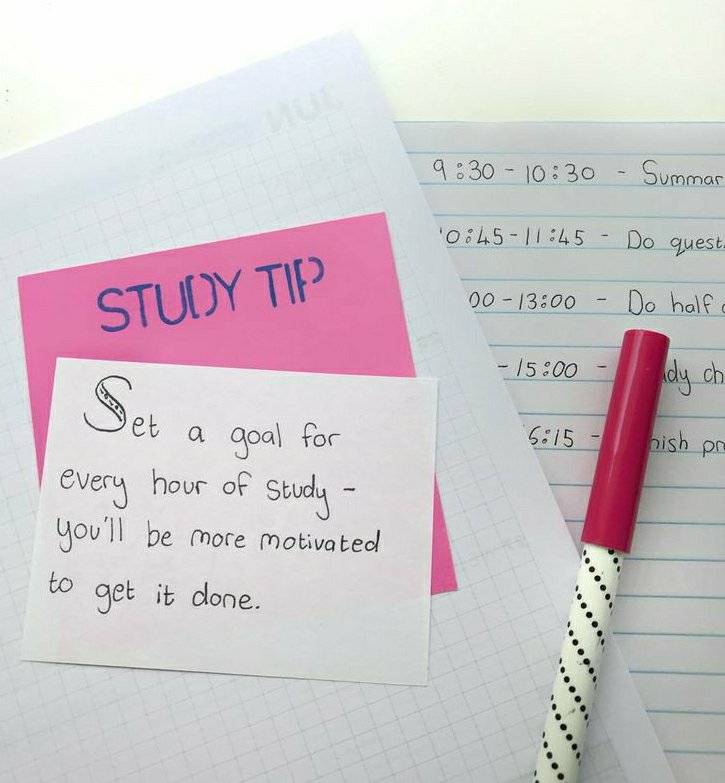 STUDY TIP
Set a goal for
every hour of study -
you'll be more motivated
to get it done.
9:30 - 10:30 - Summar
0:45 - 11:45 - Do quest
00 - 13:00 - Do half
- 15:00 - dy ch
6:15 - nish pr